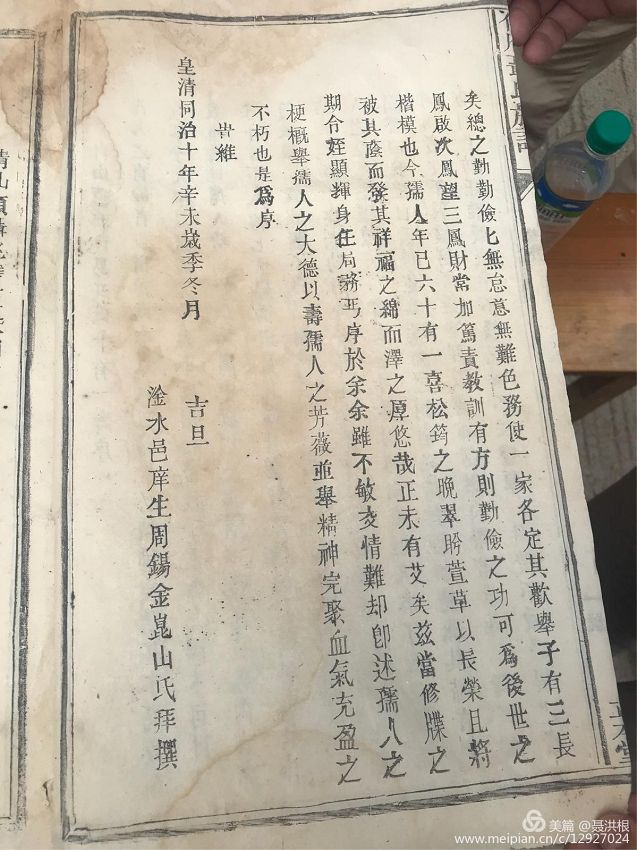 矣總之勤勤儉匕無怠意無難色務使一家各定其歡舉子有三長
鳳啟次鳳望三鳳財常加篤責教訓有方則勤儉之功可為後世之
楷模也今孺人年已六十有一喜松筠之晚翠盻萱草以長榮且將
被其蔭而發其祥福之綿而澤之厚悠哉正未有艾矣茲當修牒之
期令姪顯揮身任局務丐序於余余雖不敏交情難却卽述孺人之
梗概舉孺人之大德以壽孺人之芳徽並舉精神完聚血氣充盈之
不朽也是爲序
旹維
皇清同治十年辛未歲季冬月
吉旦
淦水邑庠生周錫金崑山氏拜撰
美篇 @聶洪根
www.meipian.cn/c/12927024